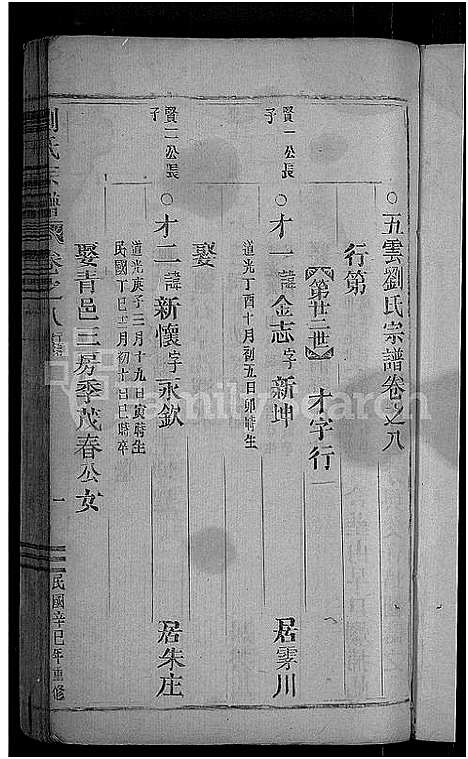 五雲劉氏宗譜卷之八
行第
【第廿二世】 才字行
賢一公長子
才一 諱金志 字新坤 居雩川
道光丁酉十月初五日卯時生
娶
賢二公長子
才二 諱新懷 字永欽 居朱庄
道光庚子二月十九日寅時生
民國丁巳十一月初十日巳時卒
娶青邑三房季茂春公女
劉氏宗譜 卷之八 行第 一 民國辛巳年重修
FamilySearch